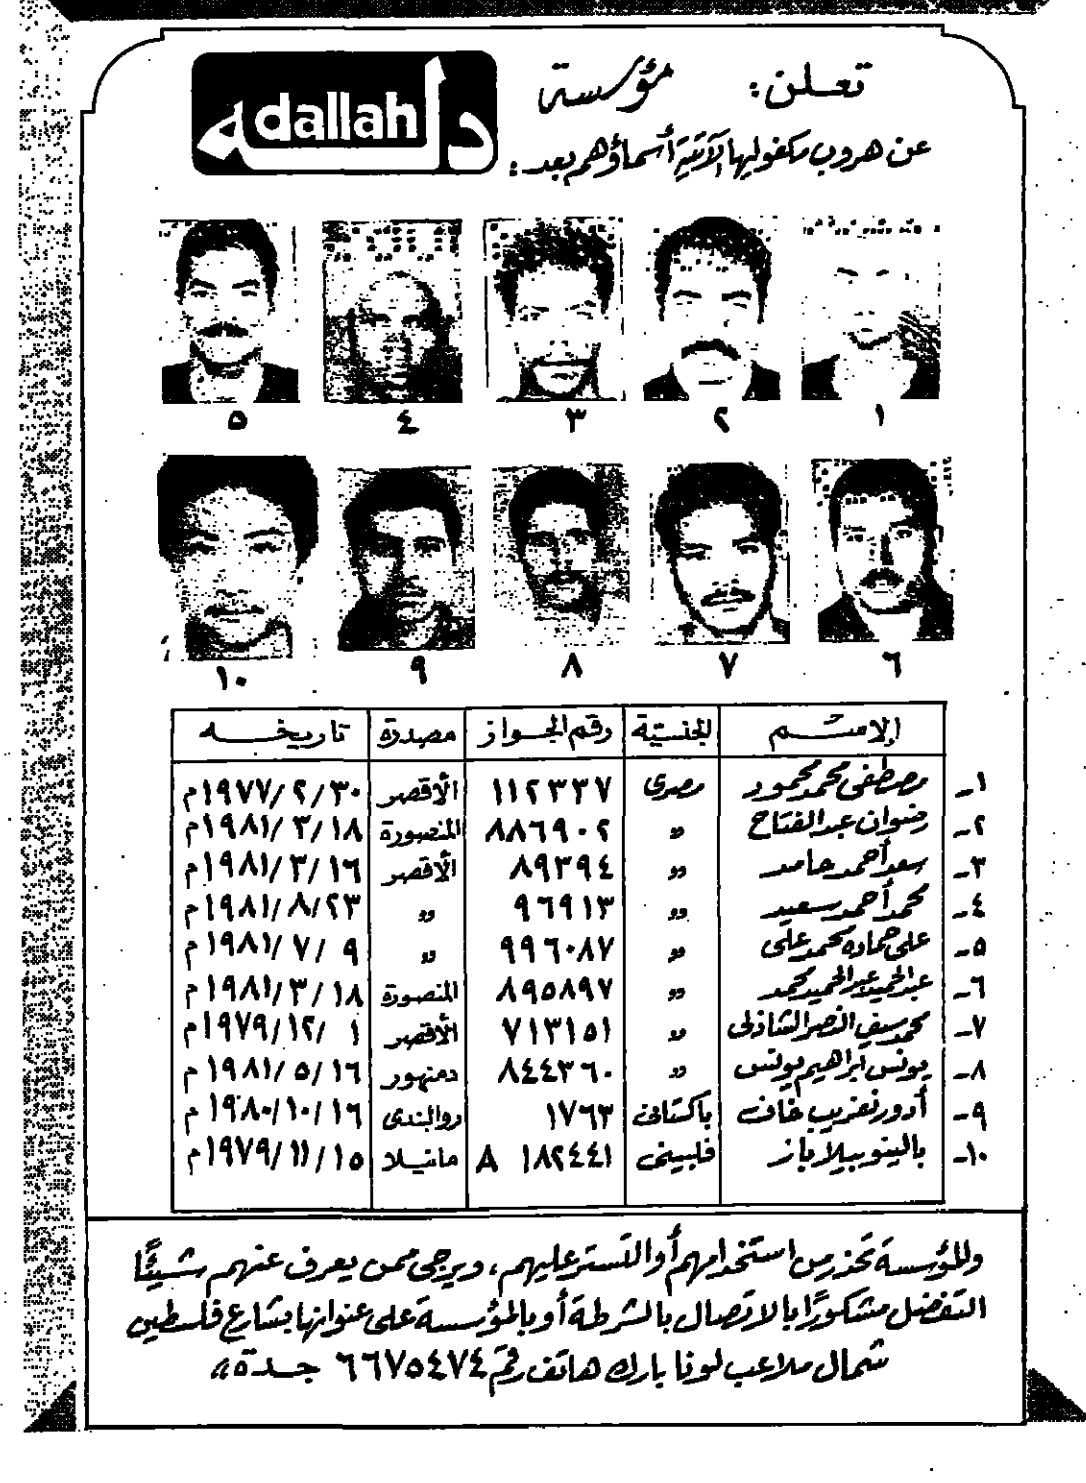 تعلن: مؤسسة
دله
dallah
عن هروب مكفوليها الآتية أسماؤهم بعد:
١ ٢ ٣ ٤ ٥
٦ ٧ ٨ ٩ ١٠
الاسم الجنسية رقم الجواز مصدره تاريخه
١- مصطفى محمد محمود مصرى ١١٢٣٣٧ الأقصر ٣٠/٢/١٩٧٧م
٢- رضوان عبد الفتاح " ٨٨٦٩٠٢ المنصورة ١٨/٣/١٩٨١م
٣- سعد أحمد حامد " ٨٩٣٩٤ الأقصر ١٦/٣/١٩٨١م
٤- محمد أحمد سعيد " ٩٦٩١٣ " ٢٣/٨/١٩٨١م
٥- على حماده محمد على " ٩٩٦٠٨٧ " ٩/٧/١٩٨١م
٦- عبد الحميد عبد الحميد محمد " ٨٩٥٨٩٧ المنصورة ١٨/٣/١٩٨١م
٧- محمد سيف النصر الشاذلى " ٧١٣١٥١ الأقصر ١/١٢/١٩٧٩م
٨- يونس ابراهيم يونس " ٨٤٤٣٦٠ دمنهور ١٦/٥/١٩٨١م
٩- خان باكستانى ١٧٦٣ روالبندى ١٦/١٠/١٩٨٠م
١٠- فلبينى ١٨٢٤٤١ ٨ مانيلا ١٥/١١/١٩٧٩م
والمؤسسة تحذر من استخدامهم أو التستر عليهم، ويرجى ممن يعرف عنهم شيئًا
التفضل مشكورًا بالاتصال بالشرطة أو بالمؤسسة على عنوانها بشارع فلسطين
شمال ملاعب لونا بارك هاتف رقم ٦٦٧٥٤٧٤ جدة